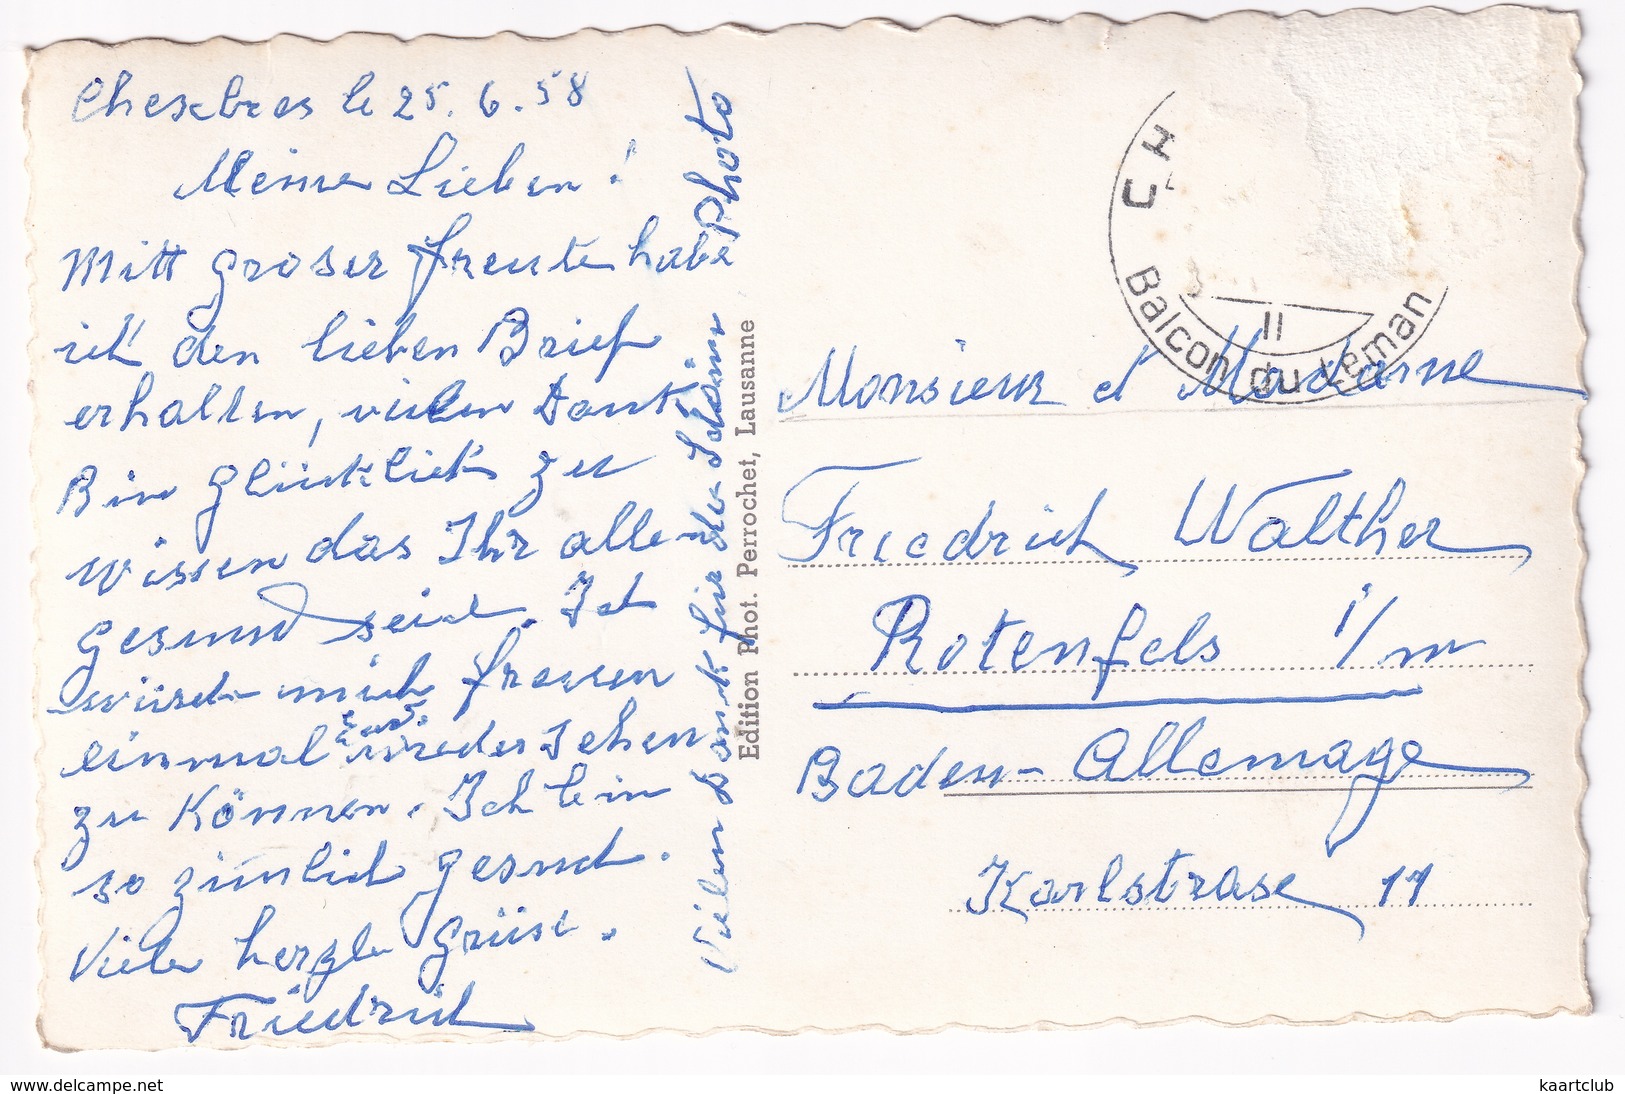 Chexbres le 25.6.58
Meine Lieben!
Mitt groser freute habe
ich den lieben Brief
erhalten, vielen Dank
Bin glücklich zu
wissen das Ihr alle
gesund seid. Ich
würde mich freuen
einmal Euch wieder sehen
zu Können. Ich bin
so zimlich gesund.
Viele herzle Grüse.
Friedrich
Vielen Dank für die schöne Photo
Edition Phot. Perrochet, Lausanne
Balcon du Léman
II
Monsieur et Madame
Friedrich Walther
Rotenfels i/m
Baden-Allemage
Karlstrase 11
www.delcampe.net
kaartclub